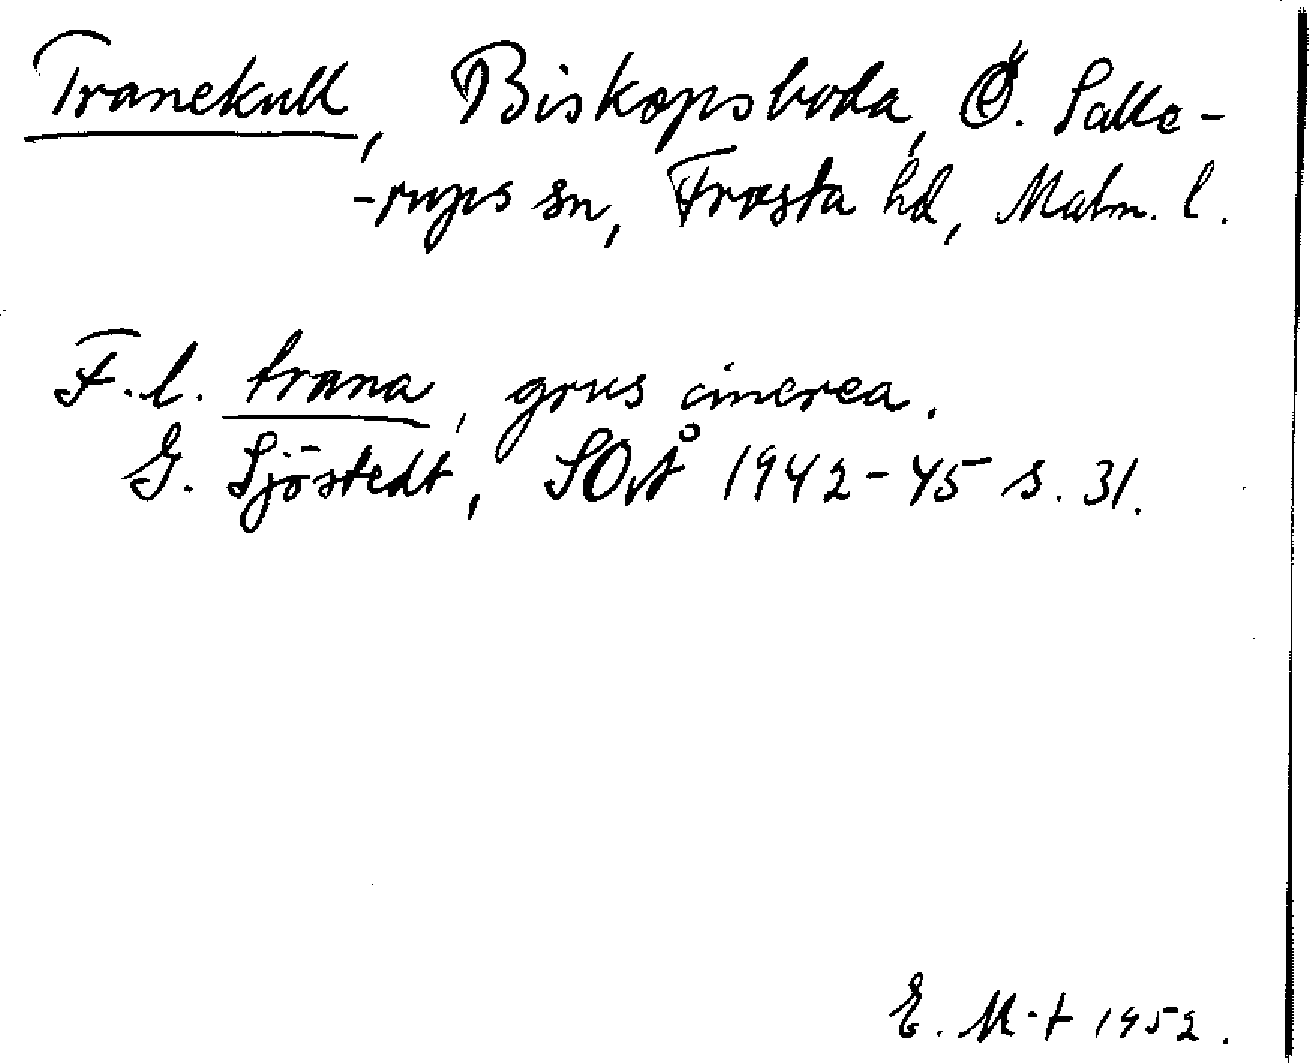 Tranekull, Biskopsboda, Ö. Salle-
-rups sn, Frosta hd, Malm. l.
F. l. trana, grus cinerea.
G. Sjöstedt, SOÅ 1942-45 s. 31.
E. M-t 1952.